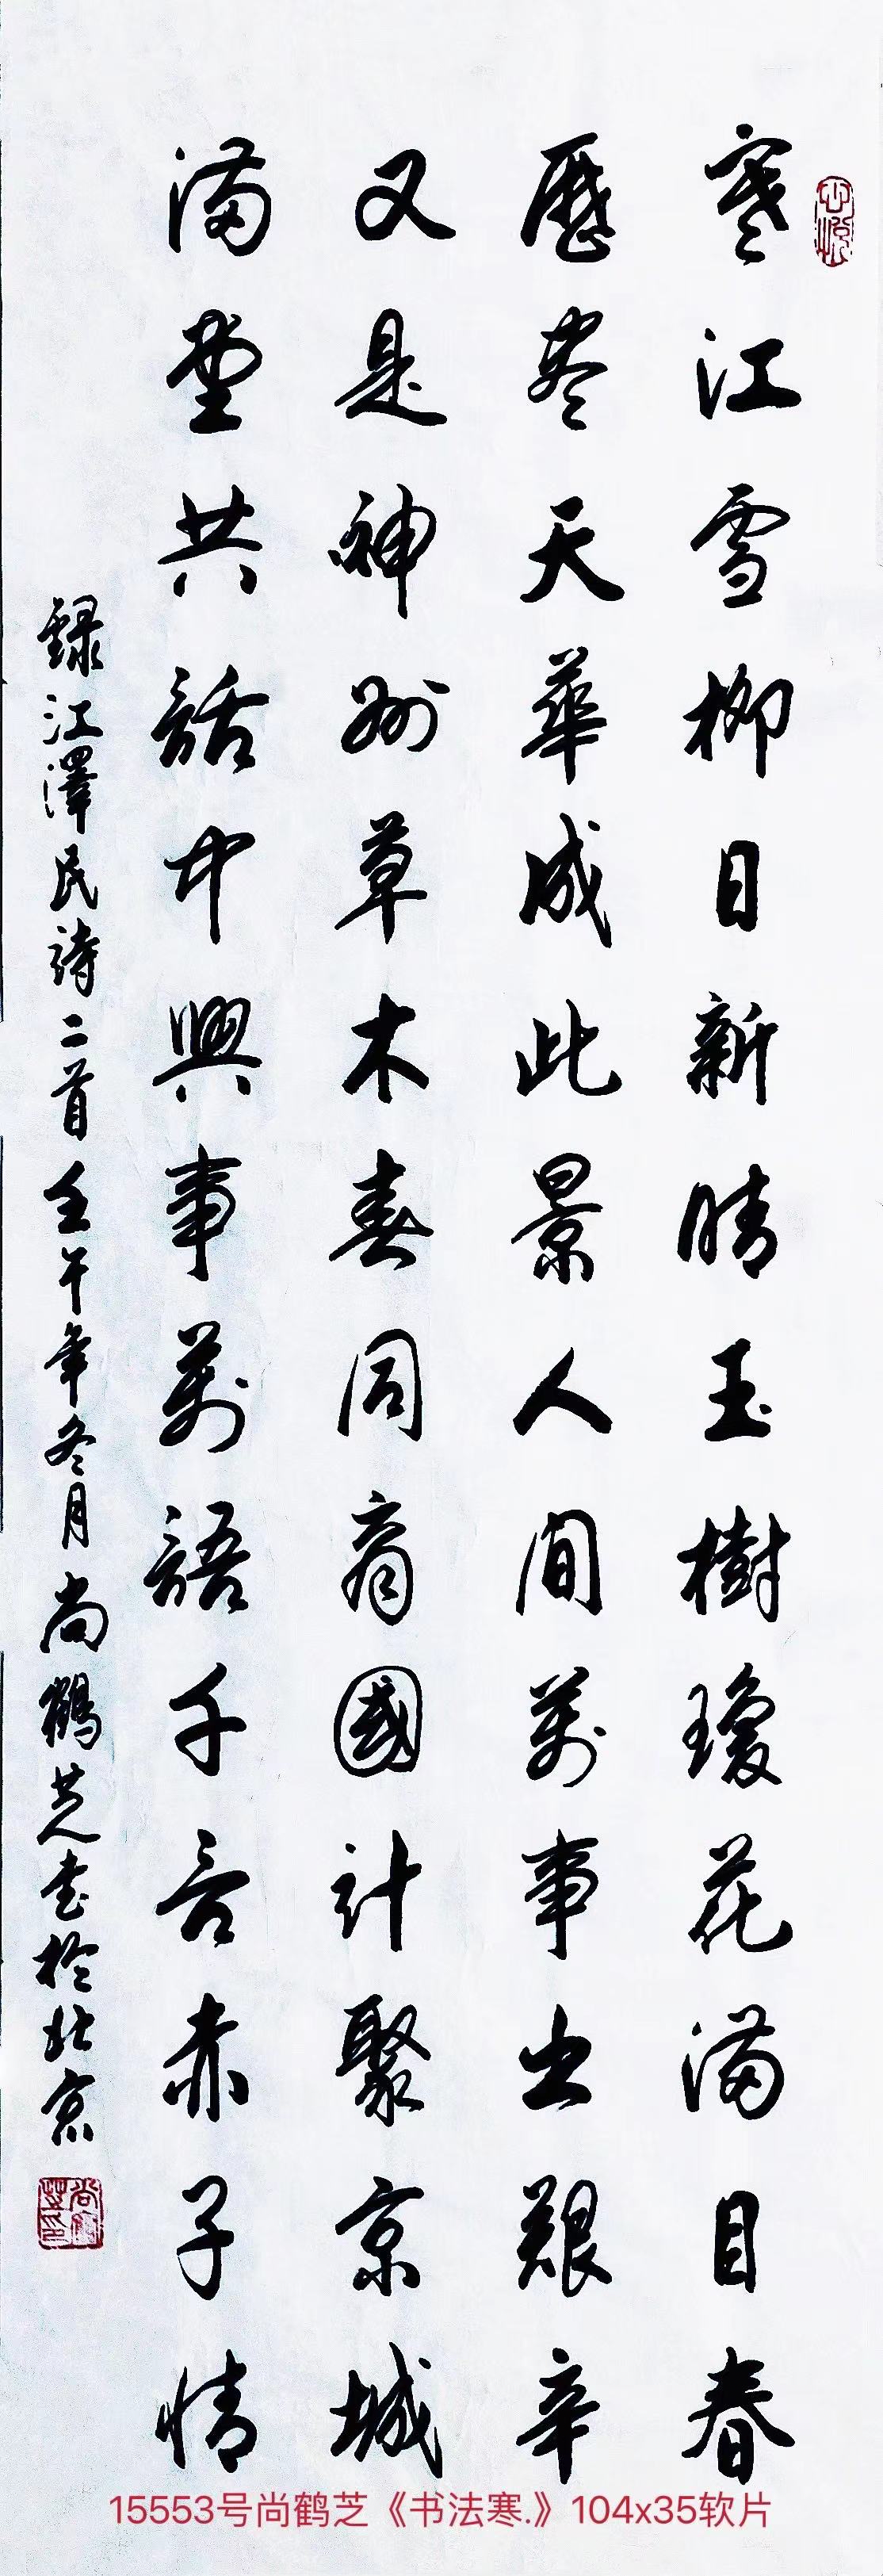 寒江雪柳日新晴玉樹瓊花滿目春
歷尽天華成此景人間萬事出艱辛
又是神州草木春同商國計聚京城
滿堂共話中興事萬語千言赤子情
録江澤民詩二首壬午年冬月尚鶴芝書於北京
15553号尚鹤芝《书法寒.》104x35软片